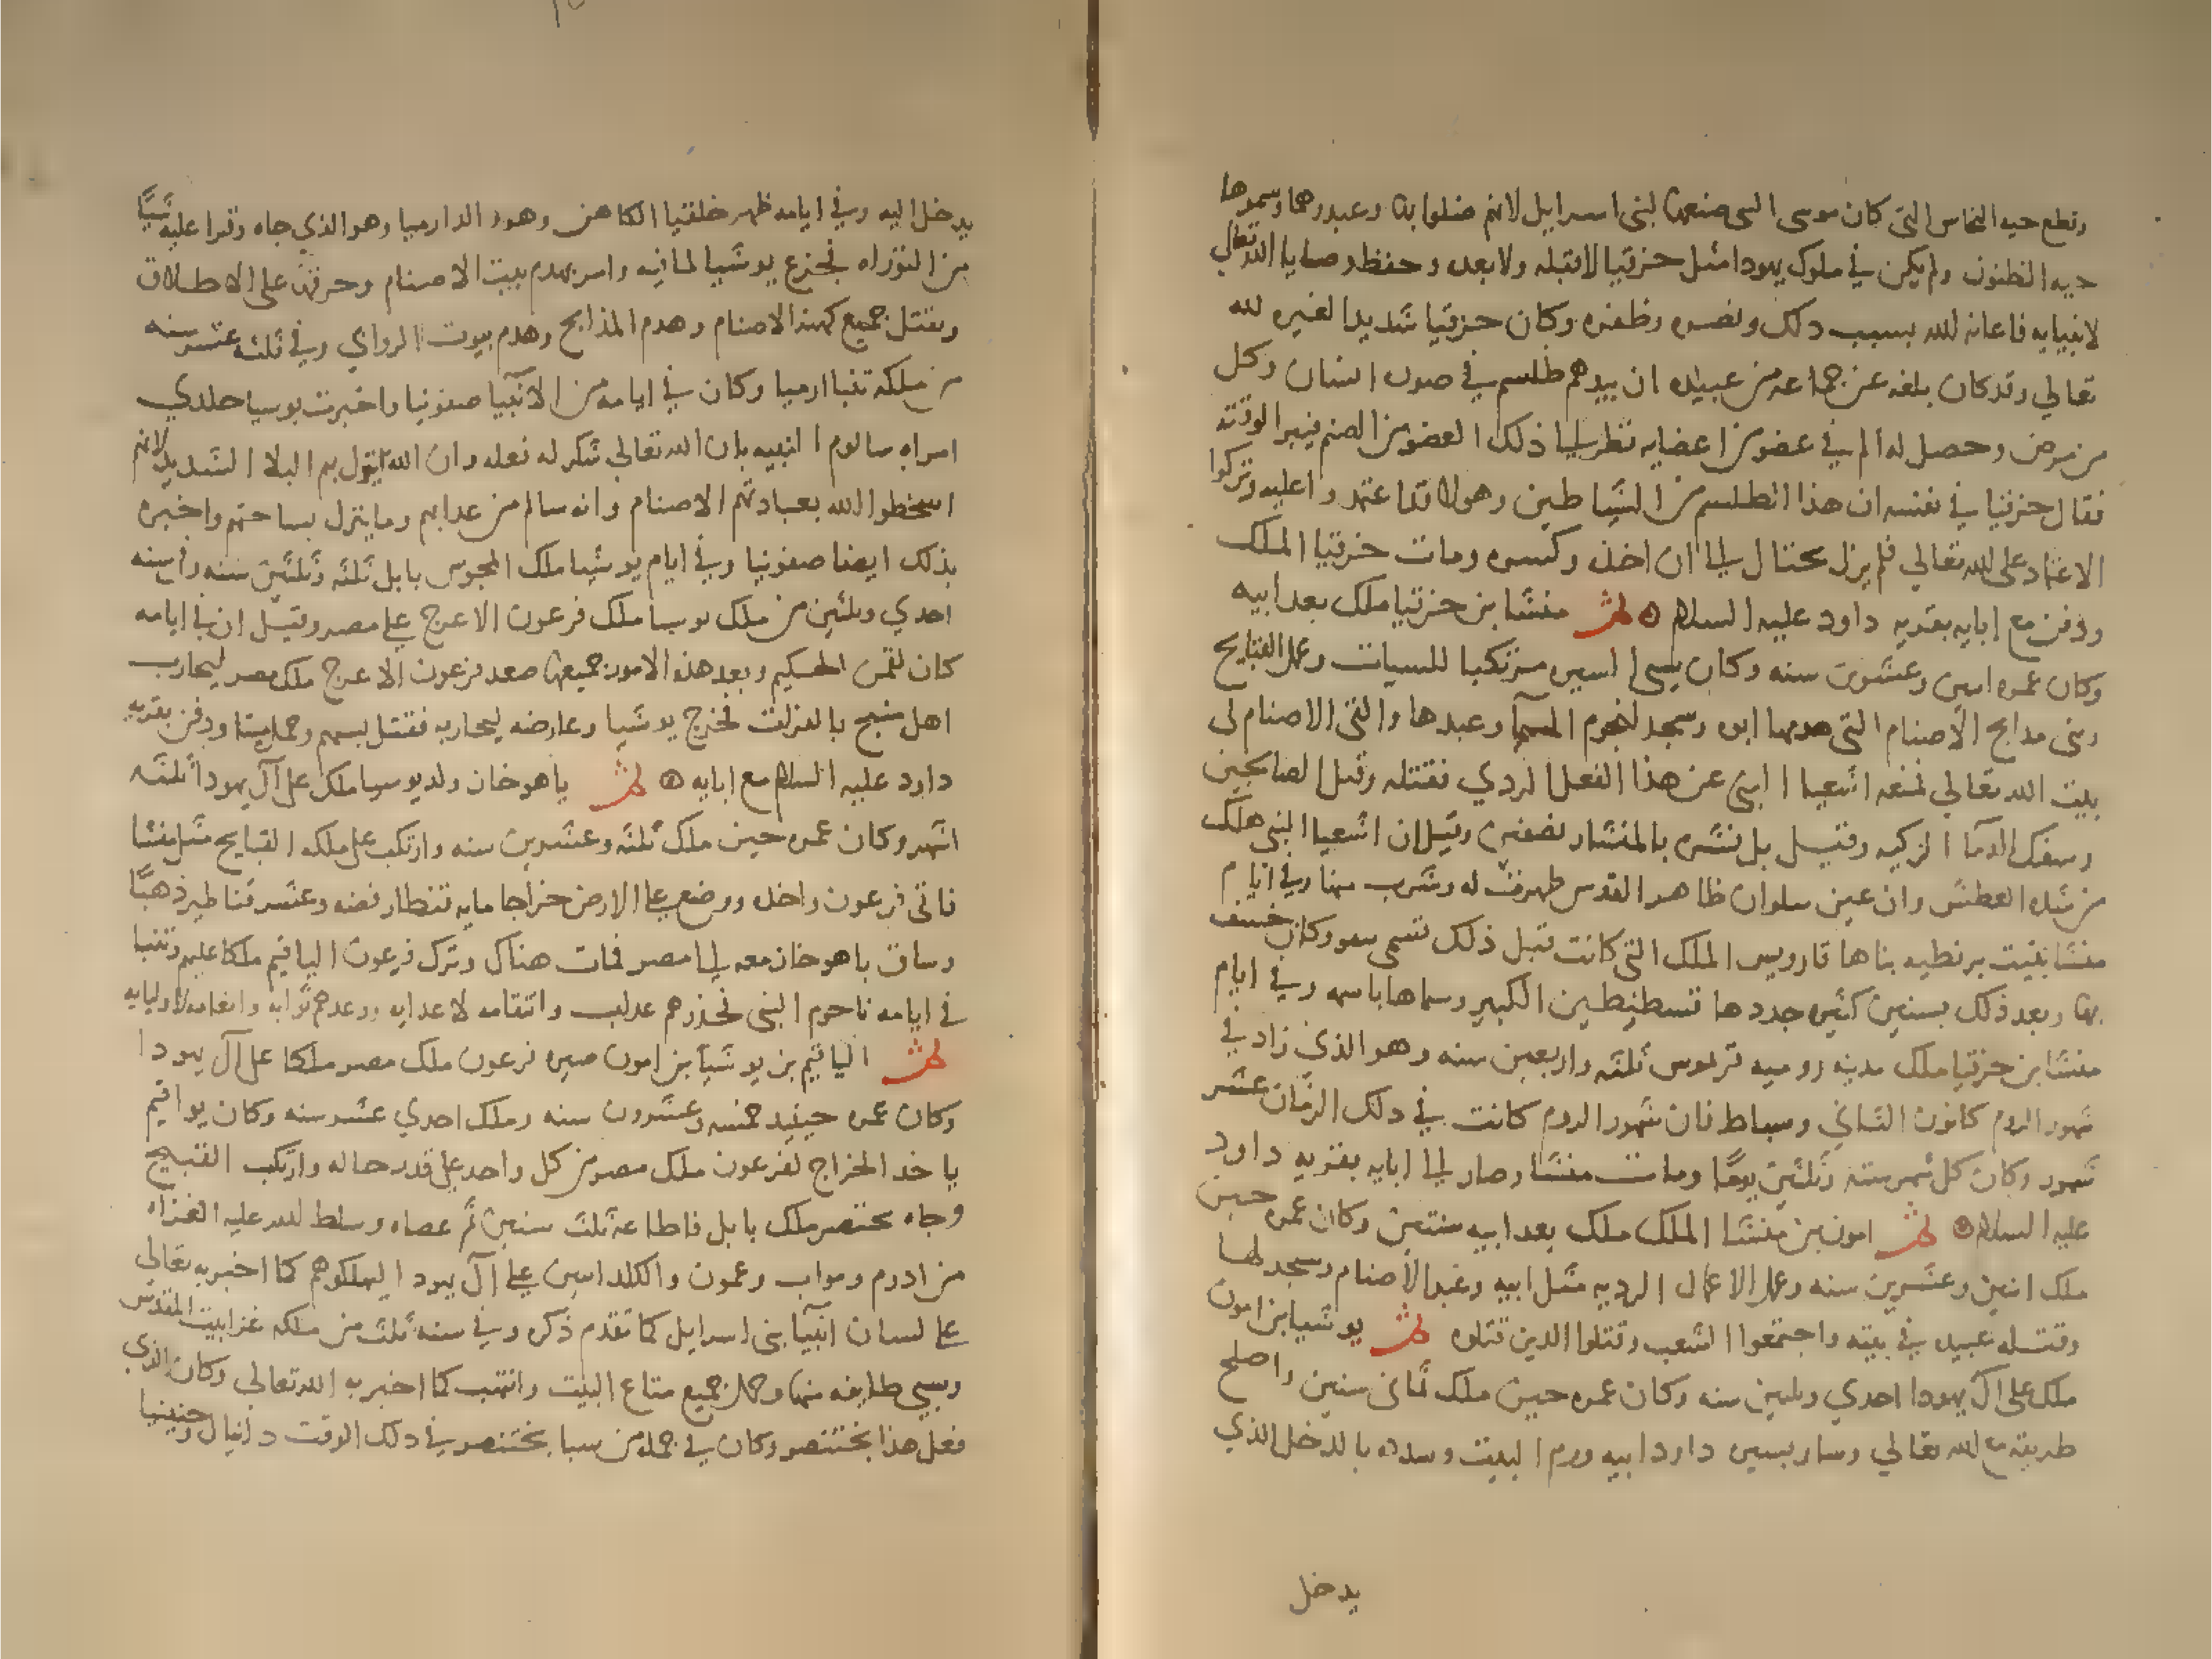 وقطع حيه النحاس التي كان موسى النبي صنعها لبني اسرايل لانهم ضلوا بها وعبدوها وسموها
حيه الظنون ولم يكن في ملوك يهودا مثل حزقيا لا قبله ولا بعده وحفظ وصايا الله تعالي
لانبيايه فاعانه الله بسبب دلك ونصره وظفره وكان حزقيا شديدا لغيره لله
تعالي وقد كان بلغه عن جماعه من عبيده ان بيدهم طلسم في صوره انسان وكل
من مرض وحصل له الم في عضو من اعضايه نظر الي ذلك العضو من الصنم فيبرا لوقته
فقال حزقيا في نفسه ان هذا الطلسم من الشياطين وهولا قد اعتمدوا عليه وتركوا
الاعتماد على الله تعالي فلم يزل يحتال الي ان اخذه وكسره ومات حزقيا الملك
ودفن مع ابايه بقريه داود عليه السلام منشا بن حزقيا ملك بعد ابيه
وكان عمره اسي وعشرين سنه وكان سي السيره مرتكبا للسيات وعمل القبايح
وبنى مدابح الاصنام التي هدمها ابوه وسجد لنجوم السما وعبدها والقى الاصنام في
بيت الله تعالي فمنعه اشعيا النبي عن هذا الفعل الردي فقتله وقتل الصالحين
وسفك الدما الزكيه وقيل بل نشره بالمنشار نصفين وقيل ان اشعيا النبي هلك
من شده العطش وان عين سلوان ظاهر القدس ظهرت له وشرب منها وفي ايام
منشا بنيت برنطيه بناها قارويس الملك التي كانت قبل ذلك تسمى وكان خسف
بها وبعد ذلك بسنين كثيره جددها قسطنطين الكبير وسماها باسمه وفي ايام
منشا بن حزقيا ملك مدينه روميه ثلثه واربعين سنه وهو الذي زاد في
شهور الروم كانون الثاني وسباط فان شهور الروم كانت في دلك الزمان عشر
شهور وكان كل شهر سته وثلثين يوما ومات منشا وصار الي ابايه بقريه داود
عليه السلام امون بن منشا الملك ملك بعد ابيه سنتين وكان عمره حين
ملك اثنين وعشرين سنه وعمل الاعمال الرديه مثل ابيه وعبد الاصنام وسجد لها
وقتله عبيده في بيته واجتمعوا الشعب وقتلوا الدين قتلوه يوشيا بن امون
ملك على ال يهودا احدي وثلثين سنه وكان عمره حين ملك ثماني سنين واصلح
طريقه مع الله تعالي وسار بسير داود ابيه ورم البيت وسدده بالدخل الذي
يدخل
يدخل اليه وفي ايامه ظهر خلقيا الكاهن وهود الدارميا وهو الذي جاه وقرا عليه شيا
من التوراه فجزع يوشيا لما فيه وامر بهدم بيت الاصنام وحرقهن على الاطلاق
وبقتل جميع كهنه الاصنام وهدم المذابح وهدم بيوت الرواي وفي ثلثه عشر سنه
من ملكه تنبا ارميا وكان في ايامه من الانبيا صفونيا واخبرت يوسيا حلدي
امراه سالوم النبيه بان الله تعالي شكر له فعله وان الله ينزل بهم البلا الشديد لانهم
اسخطوا الله بعبادتهم الاصنام وانه سالم من عدابهم وما ينزل بساحتهم واخبره
بذلك ايضا صفونيا وفي ايام يوشيا ملك المجوس بابل ثلثه وثلثين سنه وفي سنه
احدي وثلثين من ملك يوسيا ملك فرعون الاعرج على مصر وقيل ان في ايامه
كان لقمن الحكيم وبعد هذه الامور جميعها صعد فرعون الاعرج ملك مصر ليحارب
اهل منبج بالفرات فخرج يوشيا وعارضه ليحاربه فقتل بسهم وحمل ميتا ودفن بقريه
داود عليه السلام مع ابايه ياهوخان ولد يوسيا ملك على آل يهودا ثلثه
اشهر وكان عمره حين ملك ثلثه وعشرين سنه وارتكب على ملكه القبايح مثل منشا
فاتى فرعون واخده ووضع على الارض خراجا مايه قنطار فضه وعشر قناطير ذهبا
وساق ياهوخان معه الي مصر فمات هناك وترك فرعون الياقيم ملكا عليهم وتنبا
في ايامه ناحوم النبي فحذرهم وانتقامه لاعدايه ووعدهم ثوابه وانعامه لاوليايه
الياقيم بن يوشيا بن امون صيره فرعون ملك مصر ملكا على آل يهودا
وكان عمره حينيد خمسه وعشرون سنه وملك احدي عشر سنه وكان يواقيم
ياخد الخراج لفرعون ملك مصر من كل واحد على قدر حاله وارتكب القبيح
وجاه بختنصر ملك بابل فاطاعه ثلث سنين ثم عصاه وسلط الله عليه الغزاه
من ادوم ومواب وعمون والكلدانيين على آل يهودا ليهلكوهم كما اخبر به تعالى
على لسان انبيا بني اسرايل كما تقدم ذكره وفي سنه ثلث من ملكه غزا بيت المقدس
وسبي طايفه منها وحمل جميع متاع البيت وانتهب كما اخبر به الله تعالي وكان الذي
فعل هذا بختنصر وكان في جمله من سبا بختنصر في دلك الوقت دانيال وحنينيا